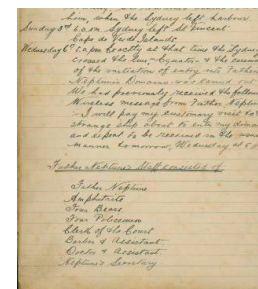 hom, when the Sydney left harbour
Sunday 3rd 6 a.m. Sydney left St Vincent
Cape de Verde Islands
Wednesday 6th 5 p.m. Exactly at that time the Sydney
crossed the Line, Equator & the ceremony
of the visitation of entry into Father
Neptune's Domains was carried out.
We had previously received the following
Wireless message from Father Neptune
I will pay my customary visit to
strange ship about to enter my domain
and expect to be received in the usual
manner tomorrow, Wednesday at 5 p.
Father Neptune's Staff consisted of
Father Neptune
Amphitrite
Four Bears
Four Policemen
Clerk of the Court
Barber & Assistant
Doctor & Assistant
Neptune's Secretary